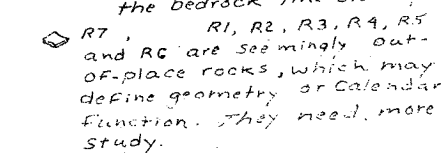 the bedrock
R7, R1, R2, R3, R4, R5
and R6 are seemingly out-
of-place rocks, which may
define geometry or Calendar
function. They need more
study.